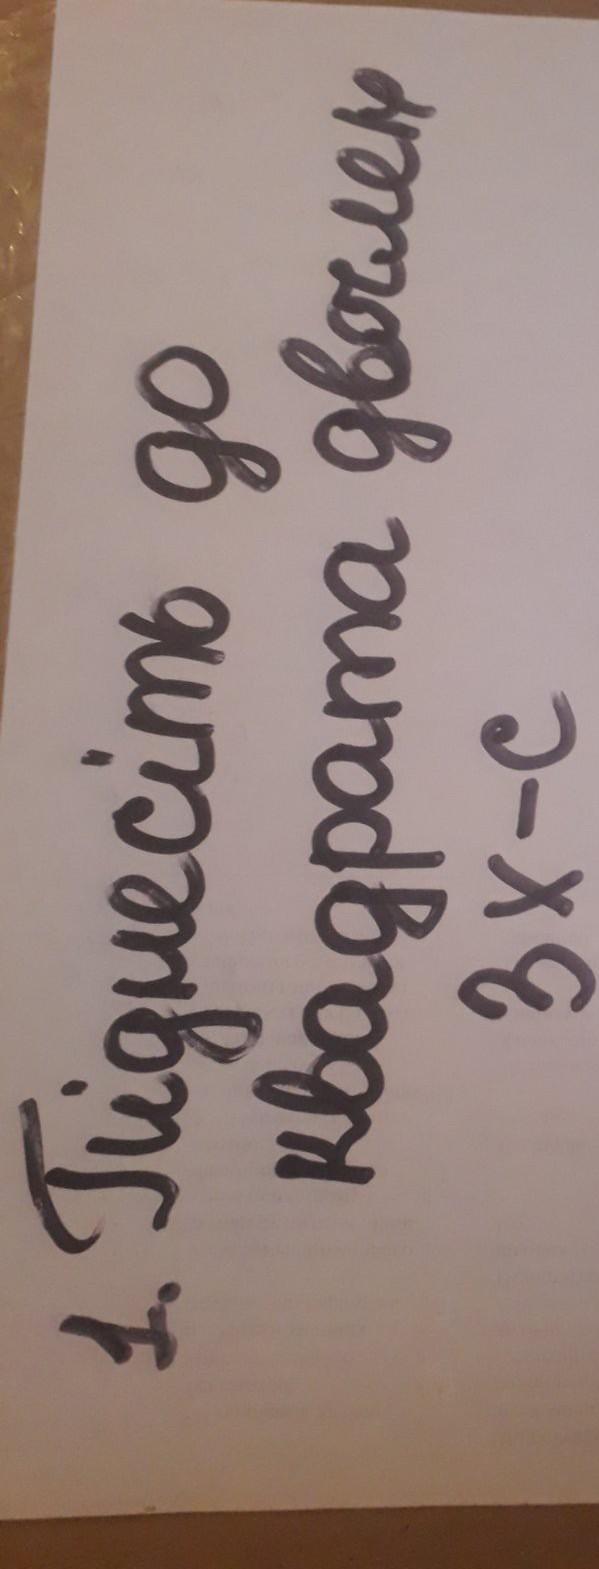 1. Піднесіть до
квадрата двочлен
3x-c